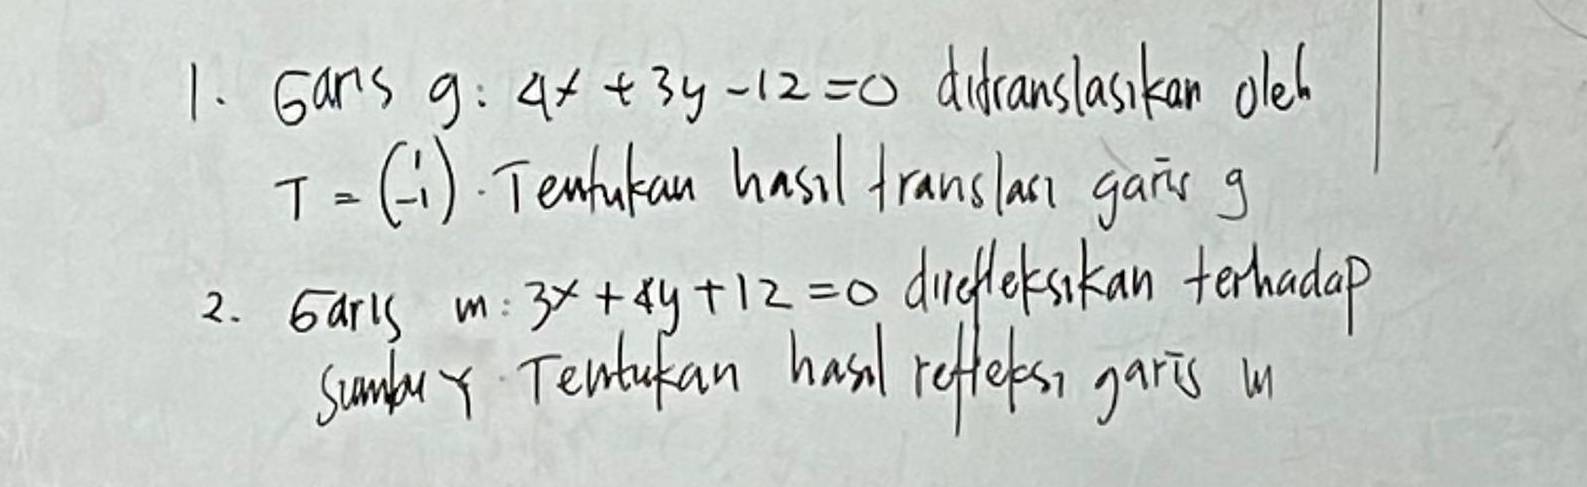 1. Garis g: 4x + 3y - 12 = 0 ditranslasikan oleh
T = (1 -1). Tentukan hasil translasi garis g
2. Garis m: 3x + 4y + 12 = 0 direfleksikan terhadap
Sumbu Y. Tentukan hasil refleksi garis m